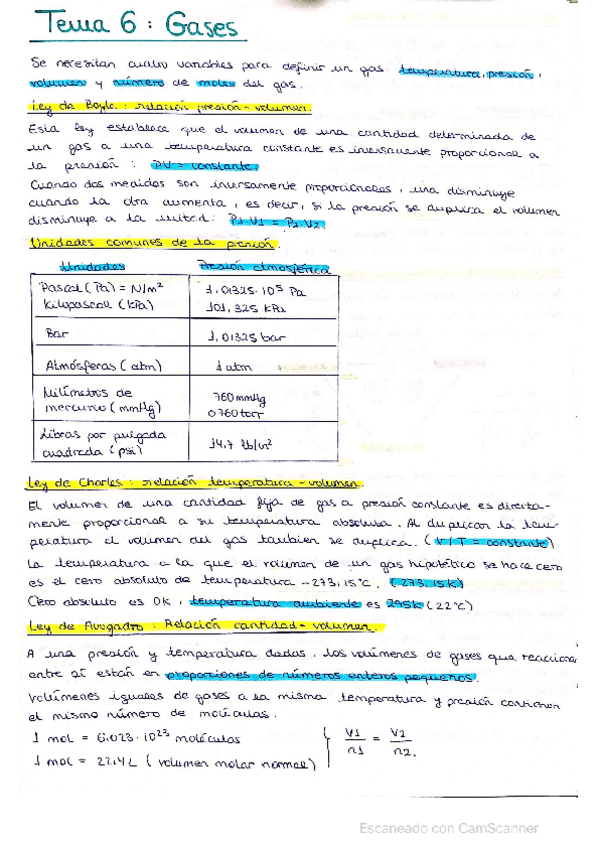 Tema 6 : Gases
Se necesitan cuatro variables para definir un gas: temperatura, presión,
volumen y número de moles del gas.
Ley de Boyle : relación presión - volumen.
Esta ley establece que el volumen de una cantidad determinada de
un gas a una temperatura constante es inversamente proporcional a
la presión : PV = constante.
Cuando dos medidas son inversamente proporcionales, una disminuye
cuando la otra aumenta, es decir, si la presión se duplica el volumen
disminuye a la mitad: P1·V1 = P2·V2.
Unidades comunes de la presión.
Unidades Presión atmosférica
Pascal (Pa) = N/m² 1,01325·10⁵ Pa
Kilopascal (kPa) 101,325 kPa
Bar 1,01325 bar
Atmósferas (atm) 1 atm
Milímetros de 760 mmHg
mercurio (mmHg) o 760 torr
Libras por pulgada 14.7 lb/in²
cuadrada (psi)
Ley de Charles : relación temperatura - volumen.
El volumen de una cantidad fija de gas a presión constante es directa-
mente proporcional a su temperatura absoluta. Al duplicar la tem-
peratura el volumen del gas tambien se duplica. (V/T = constante)
La temperatura a la que el volumen de un gas hipotético se hace cero
es el cero absoluto de temperatura -273,15°C. (273,15 K)
Cero absoluto es 0K, temperatura ambiente es 295k (22°C)
Ley de Avogadro : Relación cantidad - volumen.
A una presión y temperatura dadas, los volúmenes de gases que reaccionan
entre sí están en proporciones de números enteros pequeños.
Volúmenes iguales de gases a la misma temperatura y presión contienen
el mismo número de moléculas.
1 mol = 6.023·10²³ moléculas
1 mol = 22.4 L (volumen molar normal)
V1/n1 = V2/n2.
Escaneado con CamScanner